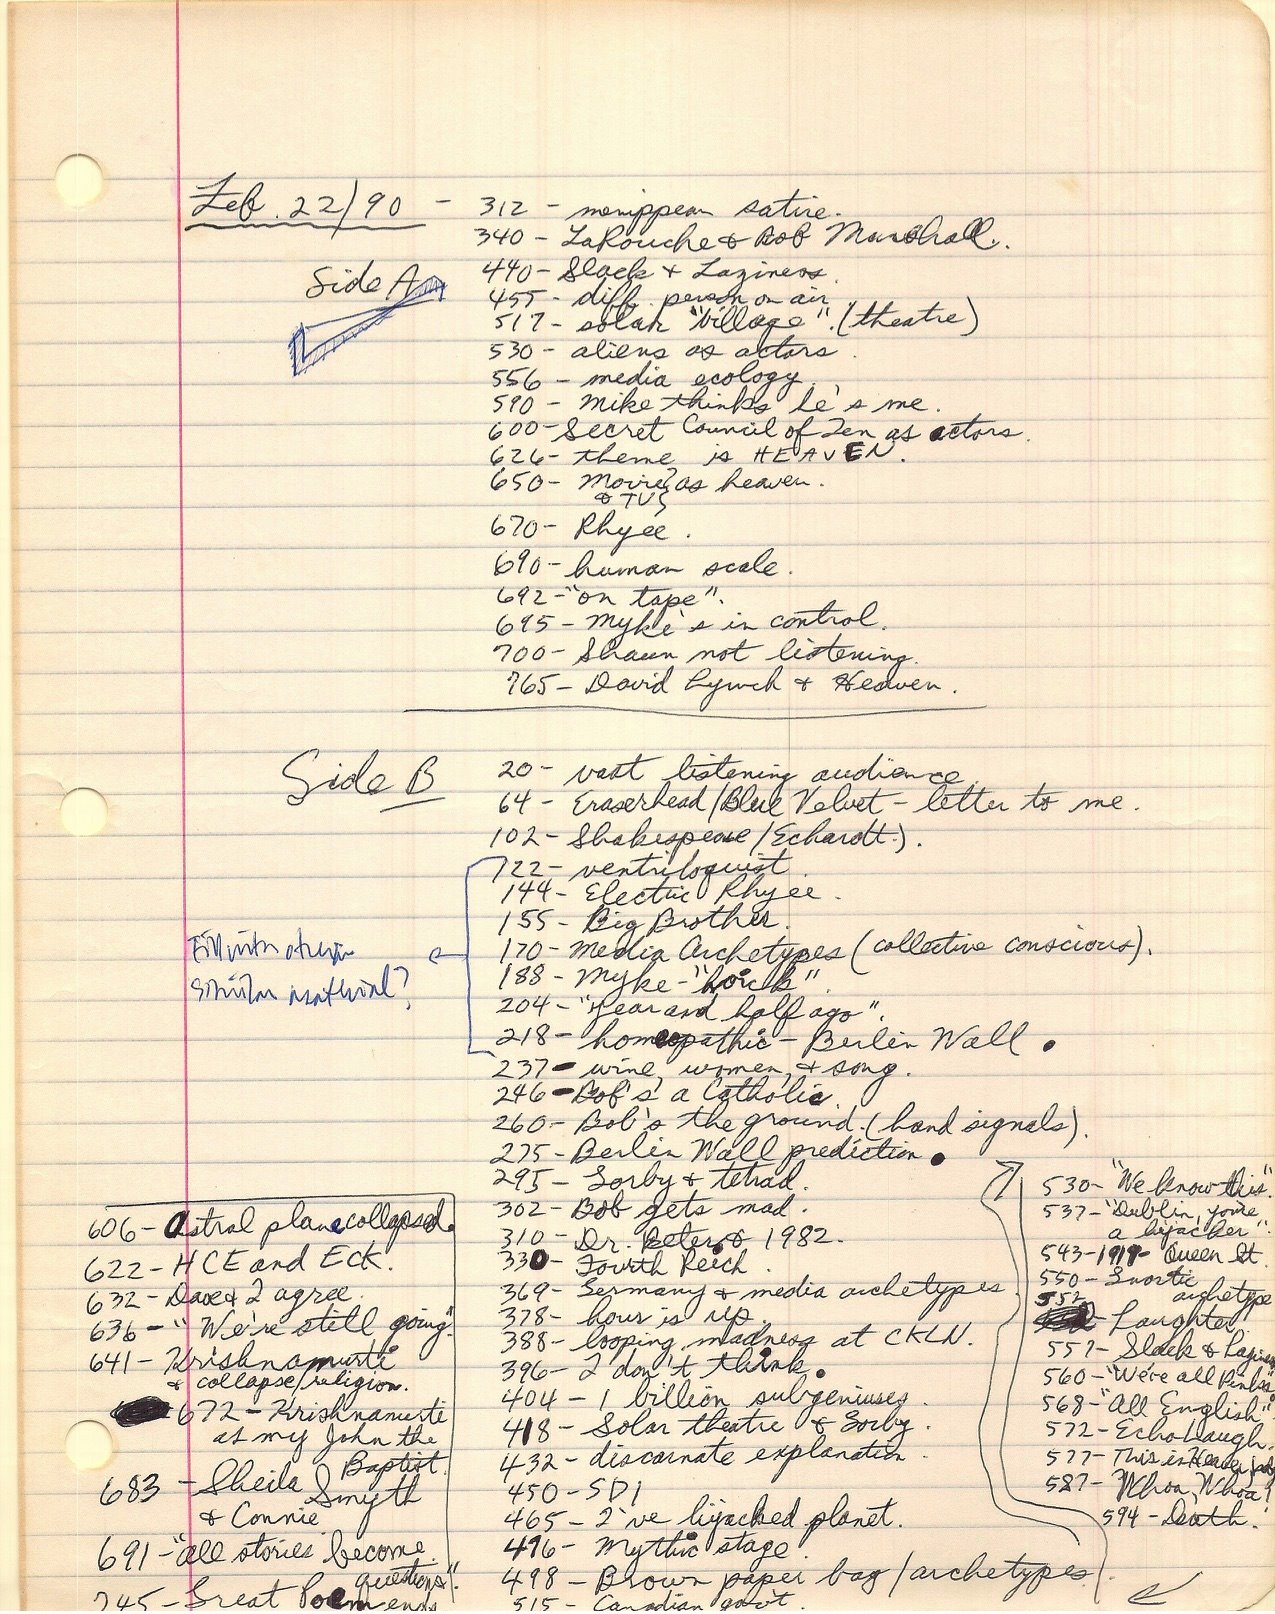 Feb. 22/90 - 312 - menippean satire.
340 - LaRouche & Bob Marshall.
Side A
440 - Slack & Laziness.
455 - diff. person on air
517 - solar "village". (theatre)
530 - aliens as actors.
556 - media ecology.
590 - Mike thinks he's me.
600 - Secret Council of Ten as actors.
626 - theme is HEAVEN.
650 - Movies as heaven.
& TV
670 - Rhyee.
690 - human scale.
692 - "on tape".
695 - Myke's in control.
700 - Shaun not listening.
765 - David Lynch & Heaven.
Side B
20 - vast listening audience
64 - Eraserhead/Blue Velvet - letter to me.
102 - Shakespeare/Echardt).
122 - ventriloquist
144 - Electric Rhyee.
155 - Big Brother.
170 - Media Archetypes (collective conscious).
188 - Myke - "hoick".
204 - "Year and half ago".
218 - homeopathic - Berlin Wall.
Fill with other
similar material?
237 - wine, women, & song.
246 - Bob's a Catholic.
260 - Bob's the ground. (hand signals).
275 - Berlin Wall prediction.
295 - Sorby & tetrad.
302 - Bob gets mad.
310 - Dr. Peter & 1982.
330 - Fourth Reich.
369 - Germany & media archetypes
378 - hour is up.
388 - looping madness at CKLN.
396 - I don't think.
404 - 1 billion subgeniuses.
418 - Solar theatre & Sorby.
432 - discarnate explanation.
450 - SDI
465 - I've hijacked planet.
496 - Mythic stage.
498 - Brown paper bag/archetypes
515 - Canadian gov't.
530 - "We know this."
537 - "Dublin, you're
a hijacker".
543 - 1919 - Queen St.
550 - Snortic
archetype
552 Laughter.
557 - Slack &
560 - "We're all Pinks"
568 - "All English".
572 - Echo Laugh.
577 - This is Heaven
587 - Whoa, Whoa!
594 - Death.
606 - Astral plane collapsed.
622 - HCE and ECK.
632 - Dave & I agree.
636 - "We're still going"
641 - Krishnamurti
& collapse/religion.
672 - Krishnamurti
as my John the
Baptist.
683 - Sheila Smyth
& Connie
691 - "all stories become
questions".
745 - Great Poem ends